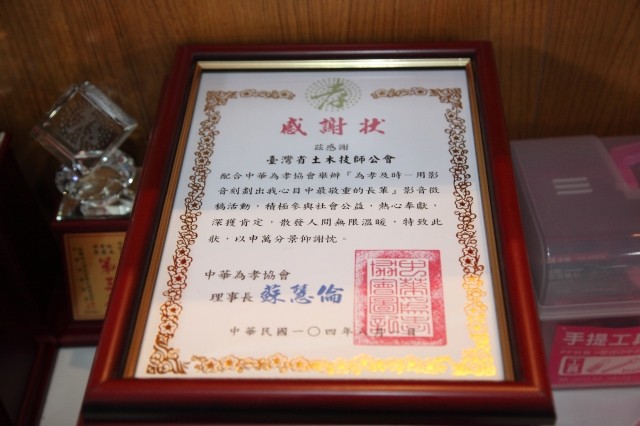 孝
感謝狀
茲感謝
臺灣省土木技師公會
配合中華為孝協會舉辦『為孝及時－用影
音刻劃出我心目中最敬重的長輩』影音徵
稿活動，積極參與社會公益，熱心奉獻，
深獲肯定，散發人間無限溫暖，特致此
狀，以申萬分景仰謝忱。
中華為孝協會
理事長 蘇慧倫
中華民國一〇四年
手提工